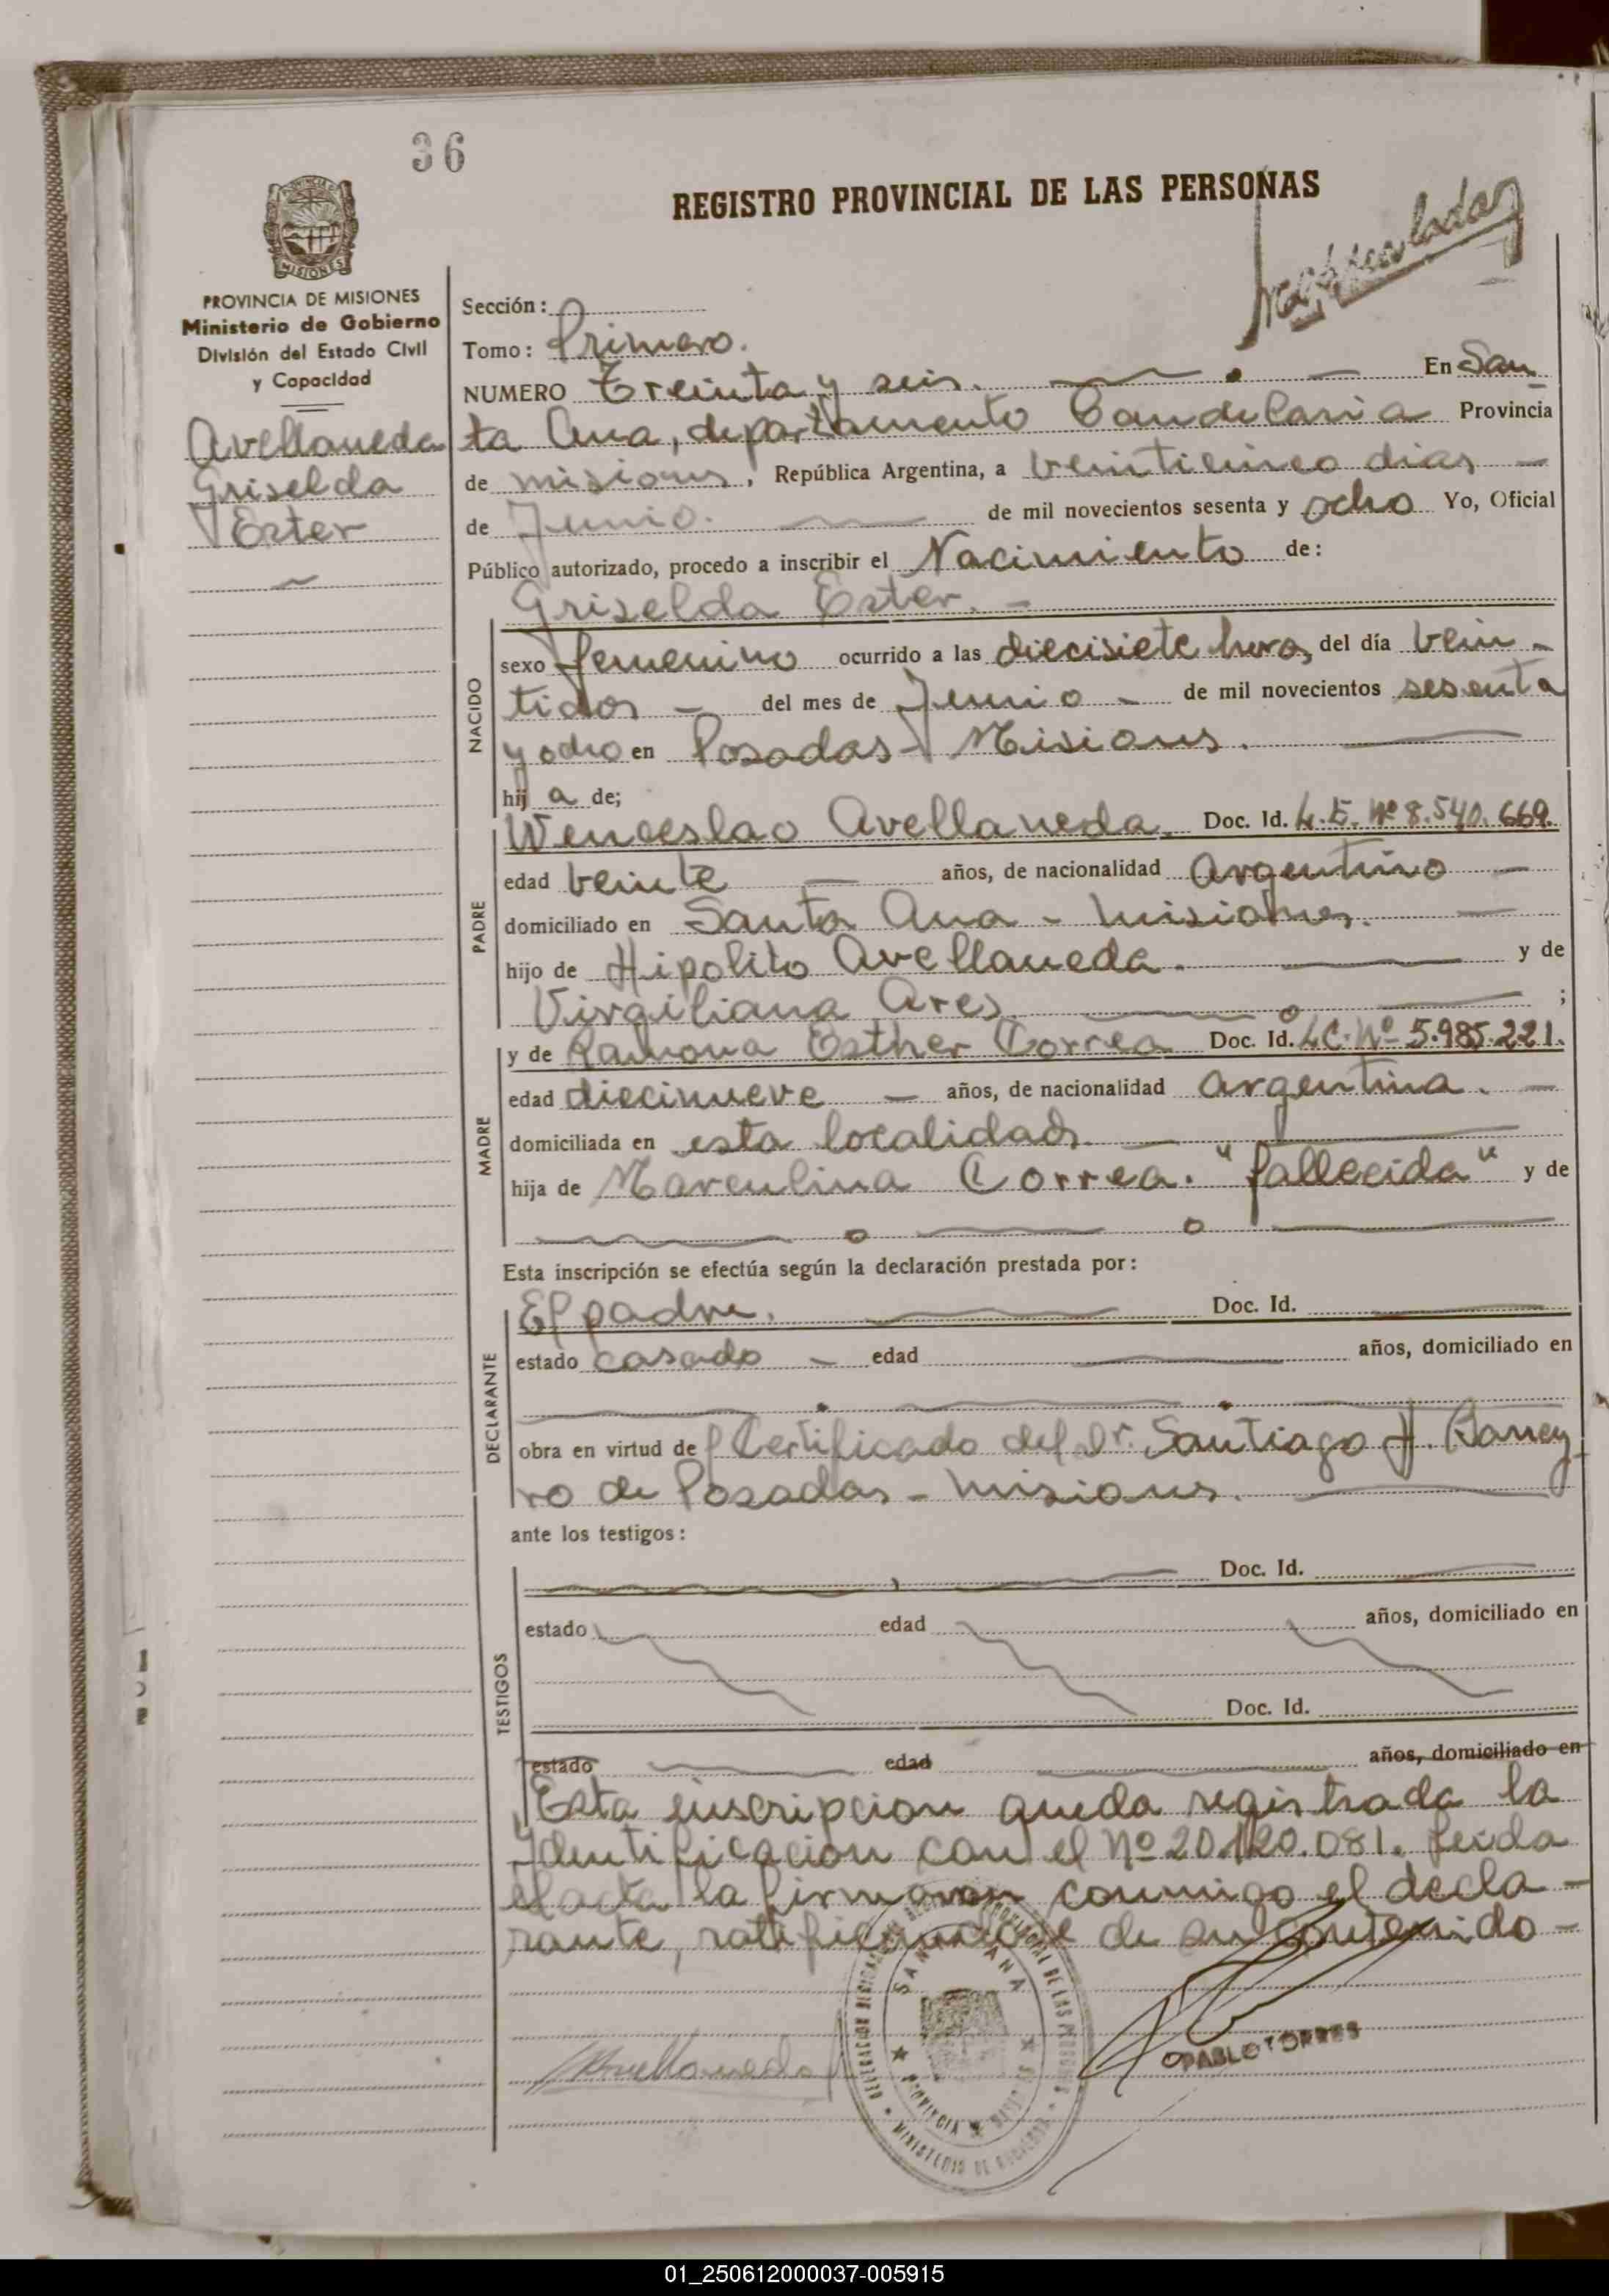 36
REGISTRO PROVINCIAL DE LAS PERSONAS
PROVINCIA DE MISIONES
Ministerio de Gobierno
División del Estado Civil
y Capacidad
Avellaneda
Griselda
Ester
Sección:
Tomo: Primero.
NUMERO Treinta y seis. En San
ta Ana, departamento Candelaria Provincia
de misiones, República Argentina, a veinticinco dias
de Junio. de mil novecientos sesenta y ocho Yo, Oficial
Público autorizado, procedo a inscribir el Nacimiento de:
Griselda Ester. -
NACIDO
sexo femenino ocurrido a las diecisiete horas, del día vein -
tidos - del mes de Junio - de mil novecientos sesenta
y ocho en Posadas - Misiones.
hij a de;
PADRE
Wenceslao Avellaneda. Doc. Id. L.E. Nº 8.540.669.
edad veinte años, de nacionalidad argentino
domiciliado en Santa Ana - misiones.
hijo de Hipolito Avellaneda. y de
Virgiliana Ares ;
MADRE
y de Ramona Esther Correa Doc. Id. LC. Nº 5.985.221.
edad diecinueve - años, de nacionalidad argentina. -
domiciliada en esta localidad.
hija de Marculina Correa. "fallecida" y de
Esta inscripción se efectúa según la declaración prestada por:
DECLARANTE
El padre. Doc. Id.
estado casado - edad años, domiciliado en
obra en virtud de Certificado del Dr. Santiago H. Barrey
ro de Posadas - misiones.
ante los testigos:
TESTIGOS
Doc. Id.
estado edad años, domiciliado en
Doc. Id.
estado edad años, domiciliado en
Esta inscripcion queda registrada la
Ydentificacion con el Nº 20.120.081. Leida
el acta la firmaron conmigo el decla -
rante, ratificandose de su contenido -
SANTA ANA
Avellaneda
PABLO TORRES
01_250612000037-005915